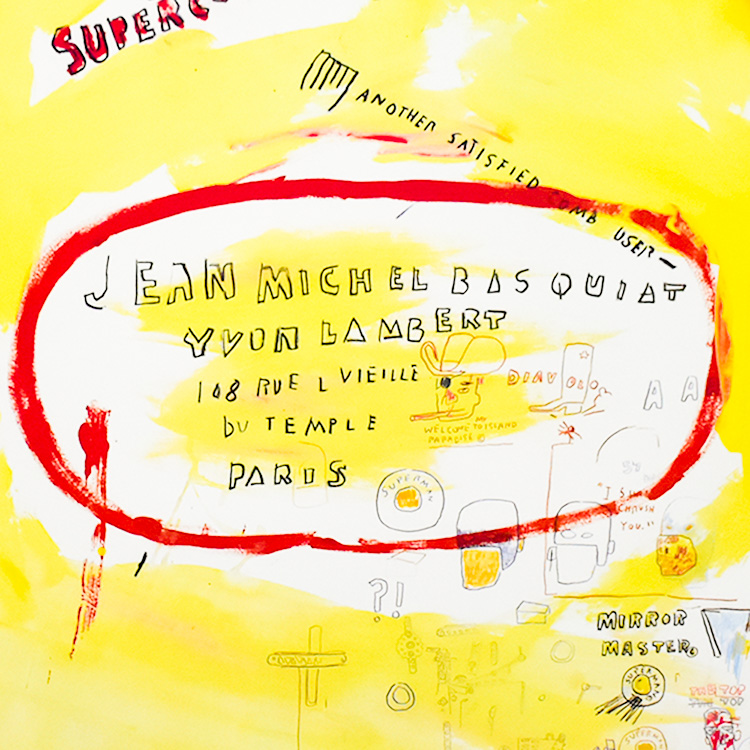 ANOTHER SATISFIED COMB USER—
JEAN MICHEL BASQUIAT
YVON LAMBERT
108 RUE L VIEILLE
DU TEMPLE
PARIS
DIAVOLO
A A
MY
WELCOME TO ISLAND
PARADISE ©
SUPERMAN
"I SHALL
CRUSH
YOU."
?!
MIRROR
MASTER.
SUPERMAN